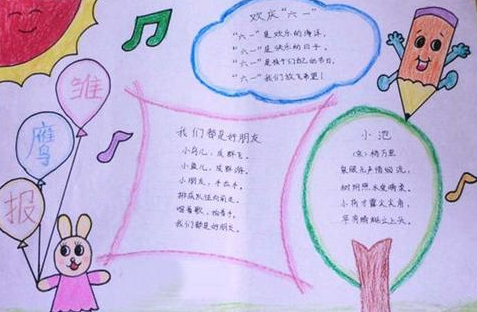 雏
鹰
报
欢庆“六一”
“六一”是欢乐的海洋,
“六一”是快乐的日子。
“六一”是孩子们自己的节日,
“六一”我们放飞希望!
我们都是好朋友
小鸟儿,成群飞。
小鱼儿,成群游。
小朋友,手拉手。
排成队伍向前走。
唱着歌,拍着手。
我们都是好朋友。
小池
(宋)杨万里
泉眼无声惜细流,
树阴照水爱晴柔。
小荷才露尖尖角,
早有蜻蜓立上头。